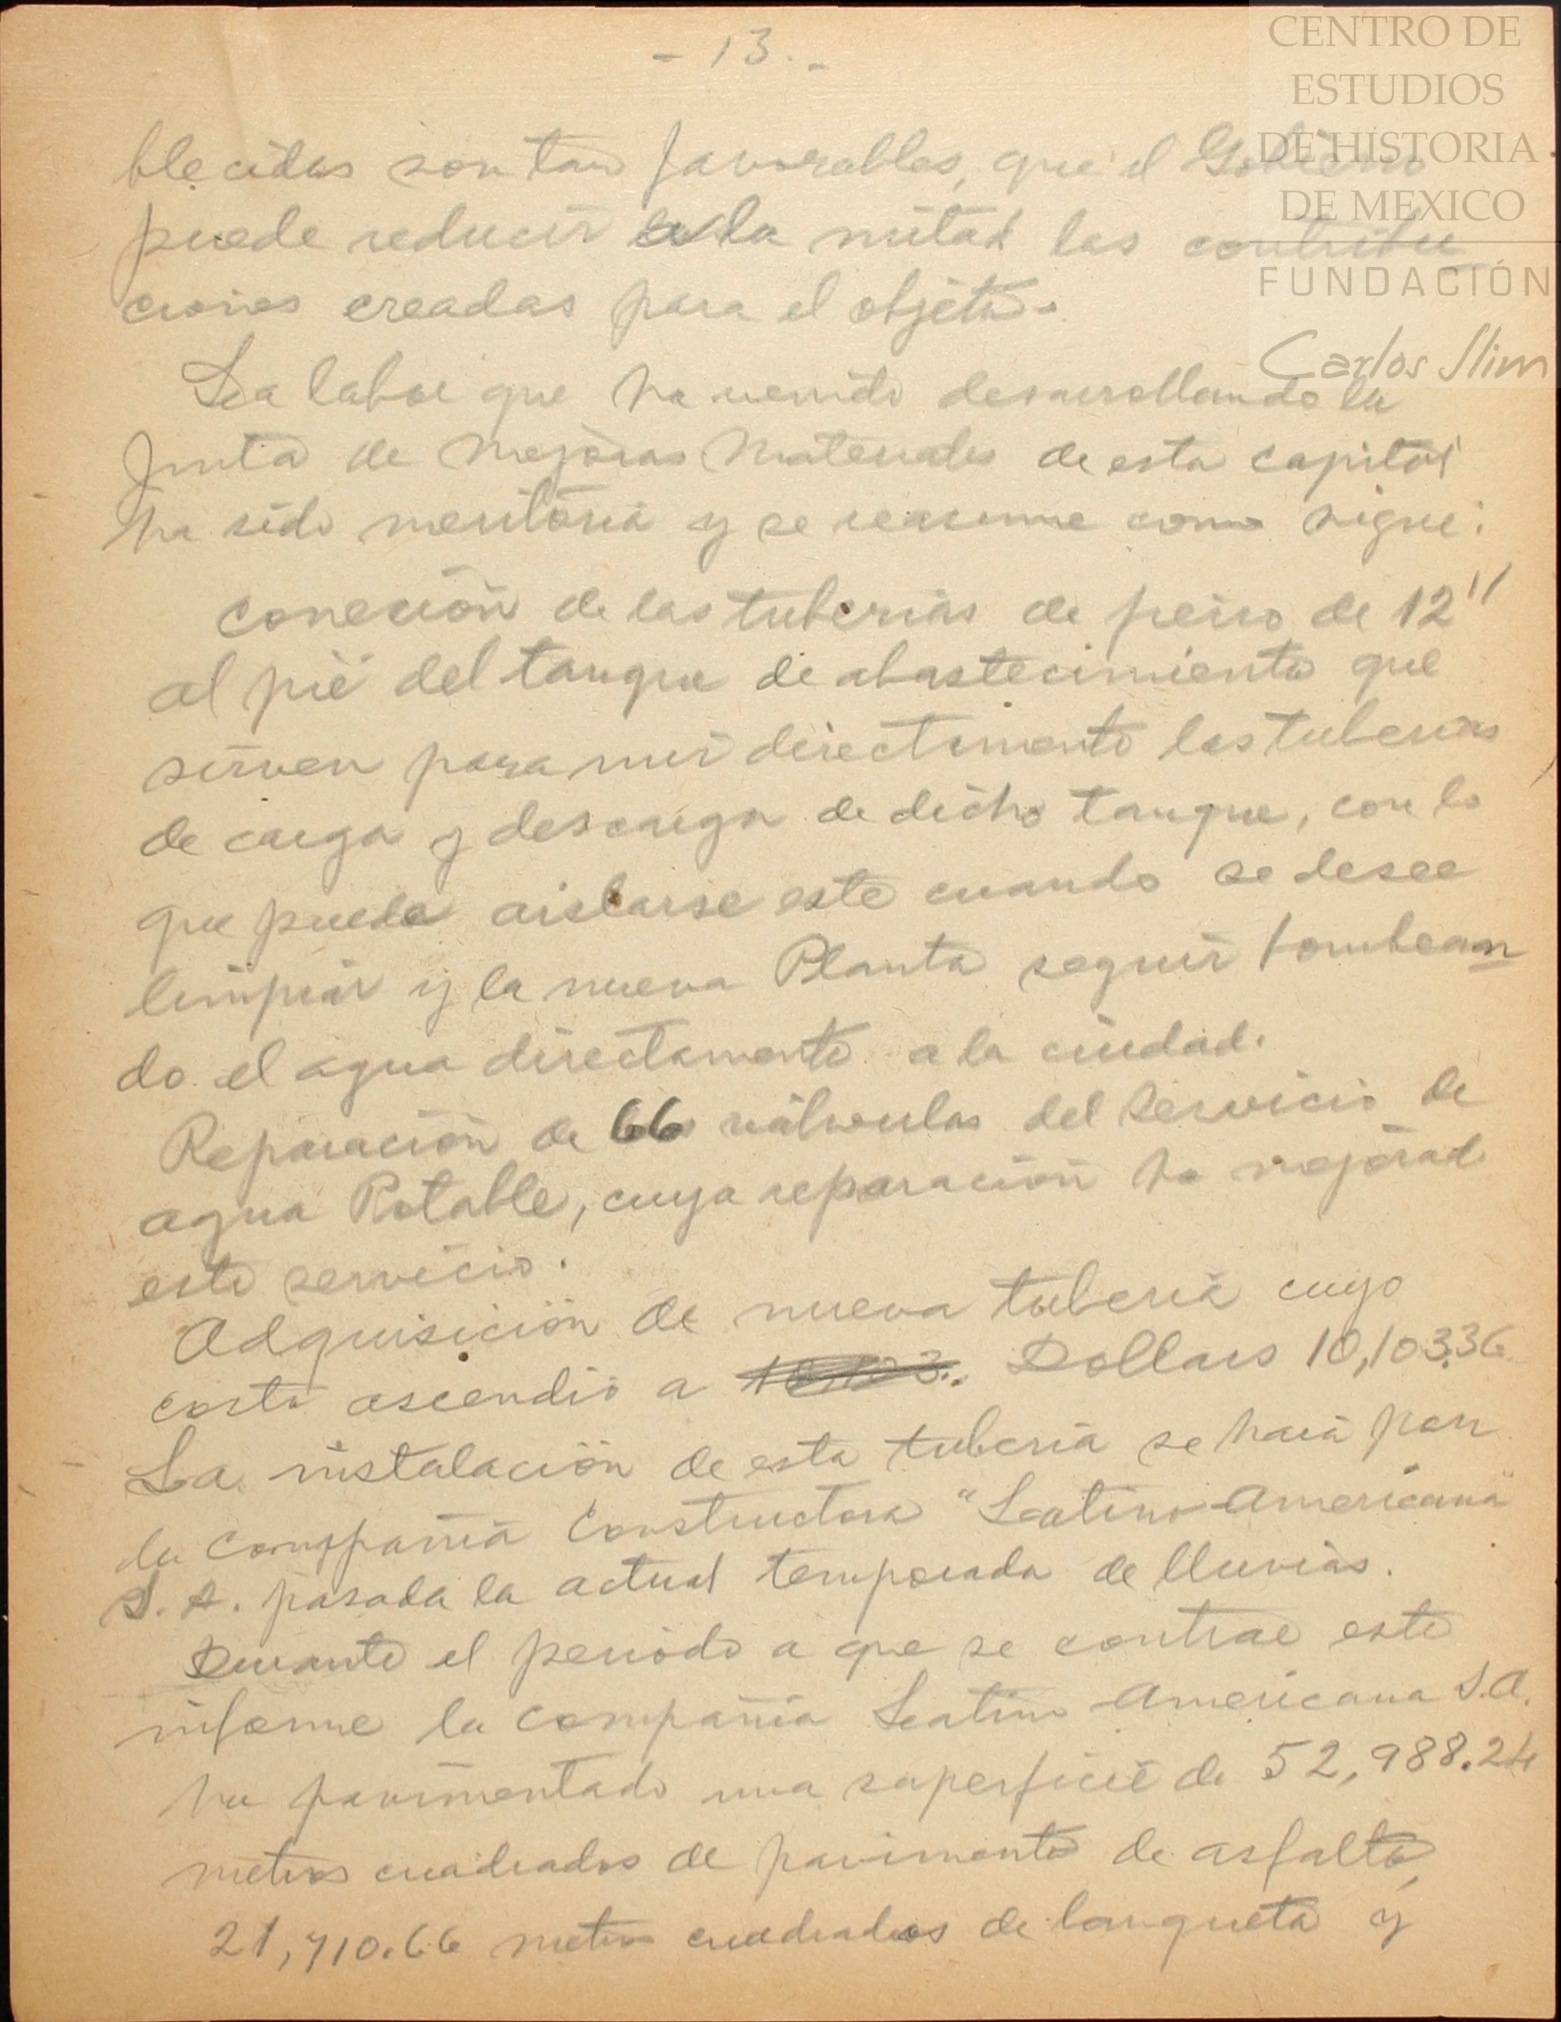 - 13. -
CENTRO DE
ESTUDIOS
DE HISTORIA
DE MEXICO
FUNDACIÓN
Carlos Slim
blecidas son tan favorables, que el Gobierno
puede reducir a la mitad las contribu
ciones creadas para el objeto.
La labor que ha venido desarrollando la
Junta de Mejoras Materiales de esta capital
ha sido meritoria y se reasume como sigue:
Conexión de las tuberias de fierro de 12"
al pié del tanque de abastecimiento que
sirven para unir directamente las tuberias
de carga y descarga de dicho tanque, con lo
que puede aislarse este cuando se desee
limpiar y la nueva Planta seguir bombean
do el agua directamente a la ciudad.
Reparación de 66 válvulas del Servicio de
agua Potable, cuya reparación ha mejorado
este servicio.
Adquisición de nueva tuberia cuyo
costo ascendió a Dollars 10,103.36
La instalación de esta tuberia se hará por
la Compañia Constructora "Latino-Americana"
S. A. pasada la actual temporada de lluvias.
Durante el periodo a que se contrae este
informe la Compañia Latino Americana S.A.
ha pavimentado una superficie de 52,988.24
metros cuadrados de pavimento de asfalto,
21,710.66 metros cuadrados de banqueta y